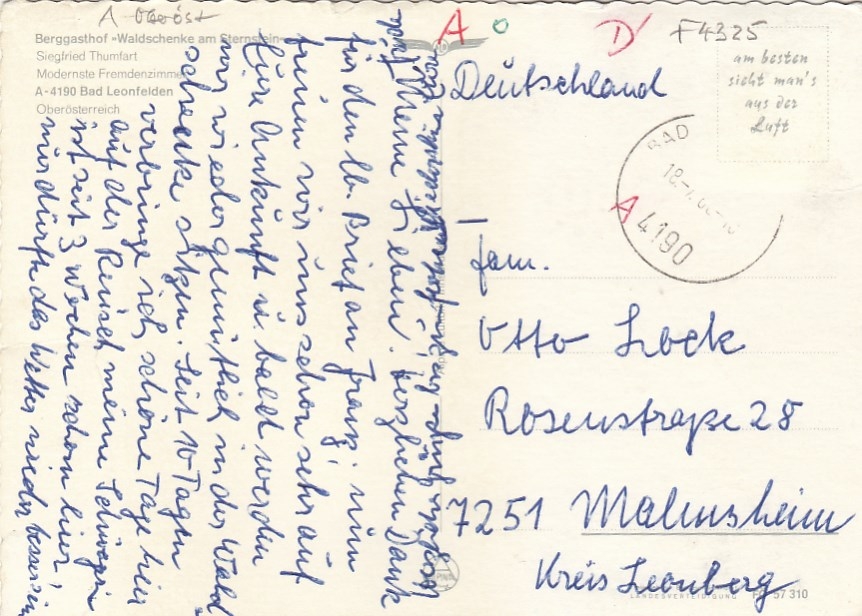 A Oberöst
Berggasthof »Waldschenke am Sternstein«
Siegfried Thumfart
Modernste Fremdenzimmer
A-4190 Bad Leonfelden
Oberösterreich
A
D
F4325
am besten
sieht man's
aus der
Luft
BAD
A 4190
Deutschland
Fam.
Otto Lock
Rosenstraße 28
7251 Malmsheim
Kreis Leonberg
LANDESVERTEIDIGUNG
57 310
Meine Lieben! Herzlichen Dank
für den lb. Brief an Franzi, nun
freuen wir uns schon sehr auf
Eure Ankunft u. bald werden
wir wieder gemütlich in der Wald
schenke sitzen. Seit 10 Tagen
verbringe ich schöne Tage hier
auf der Reusch meine Schwägerin
ist seit 3 Wochen schon hier,
nur dürfte das Wetter wieder besser sein